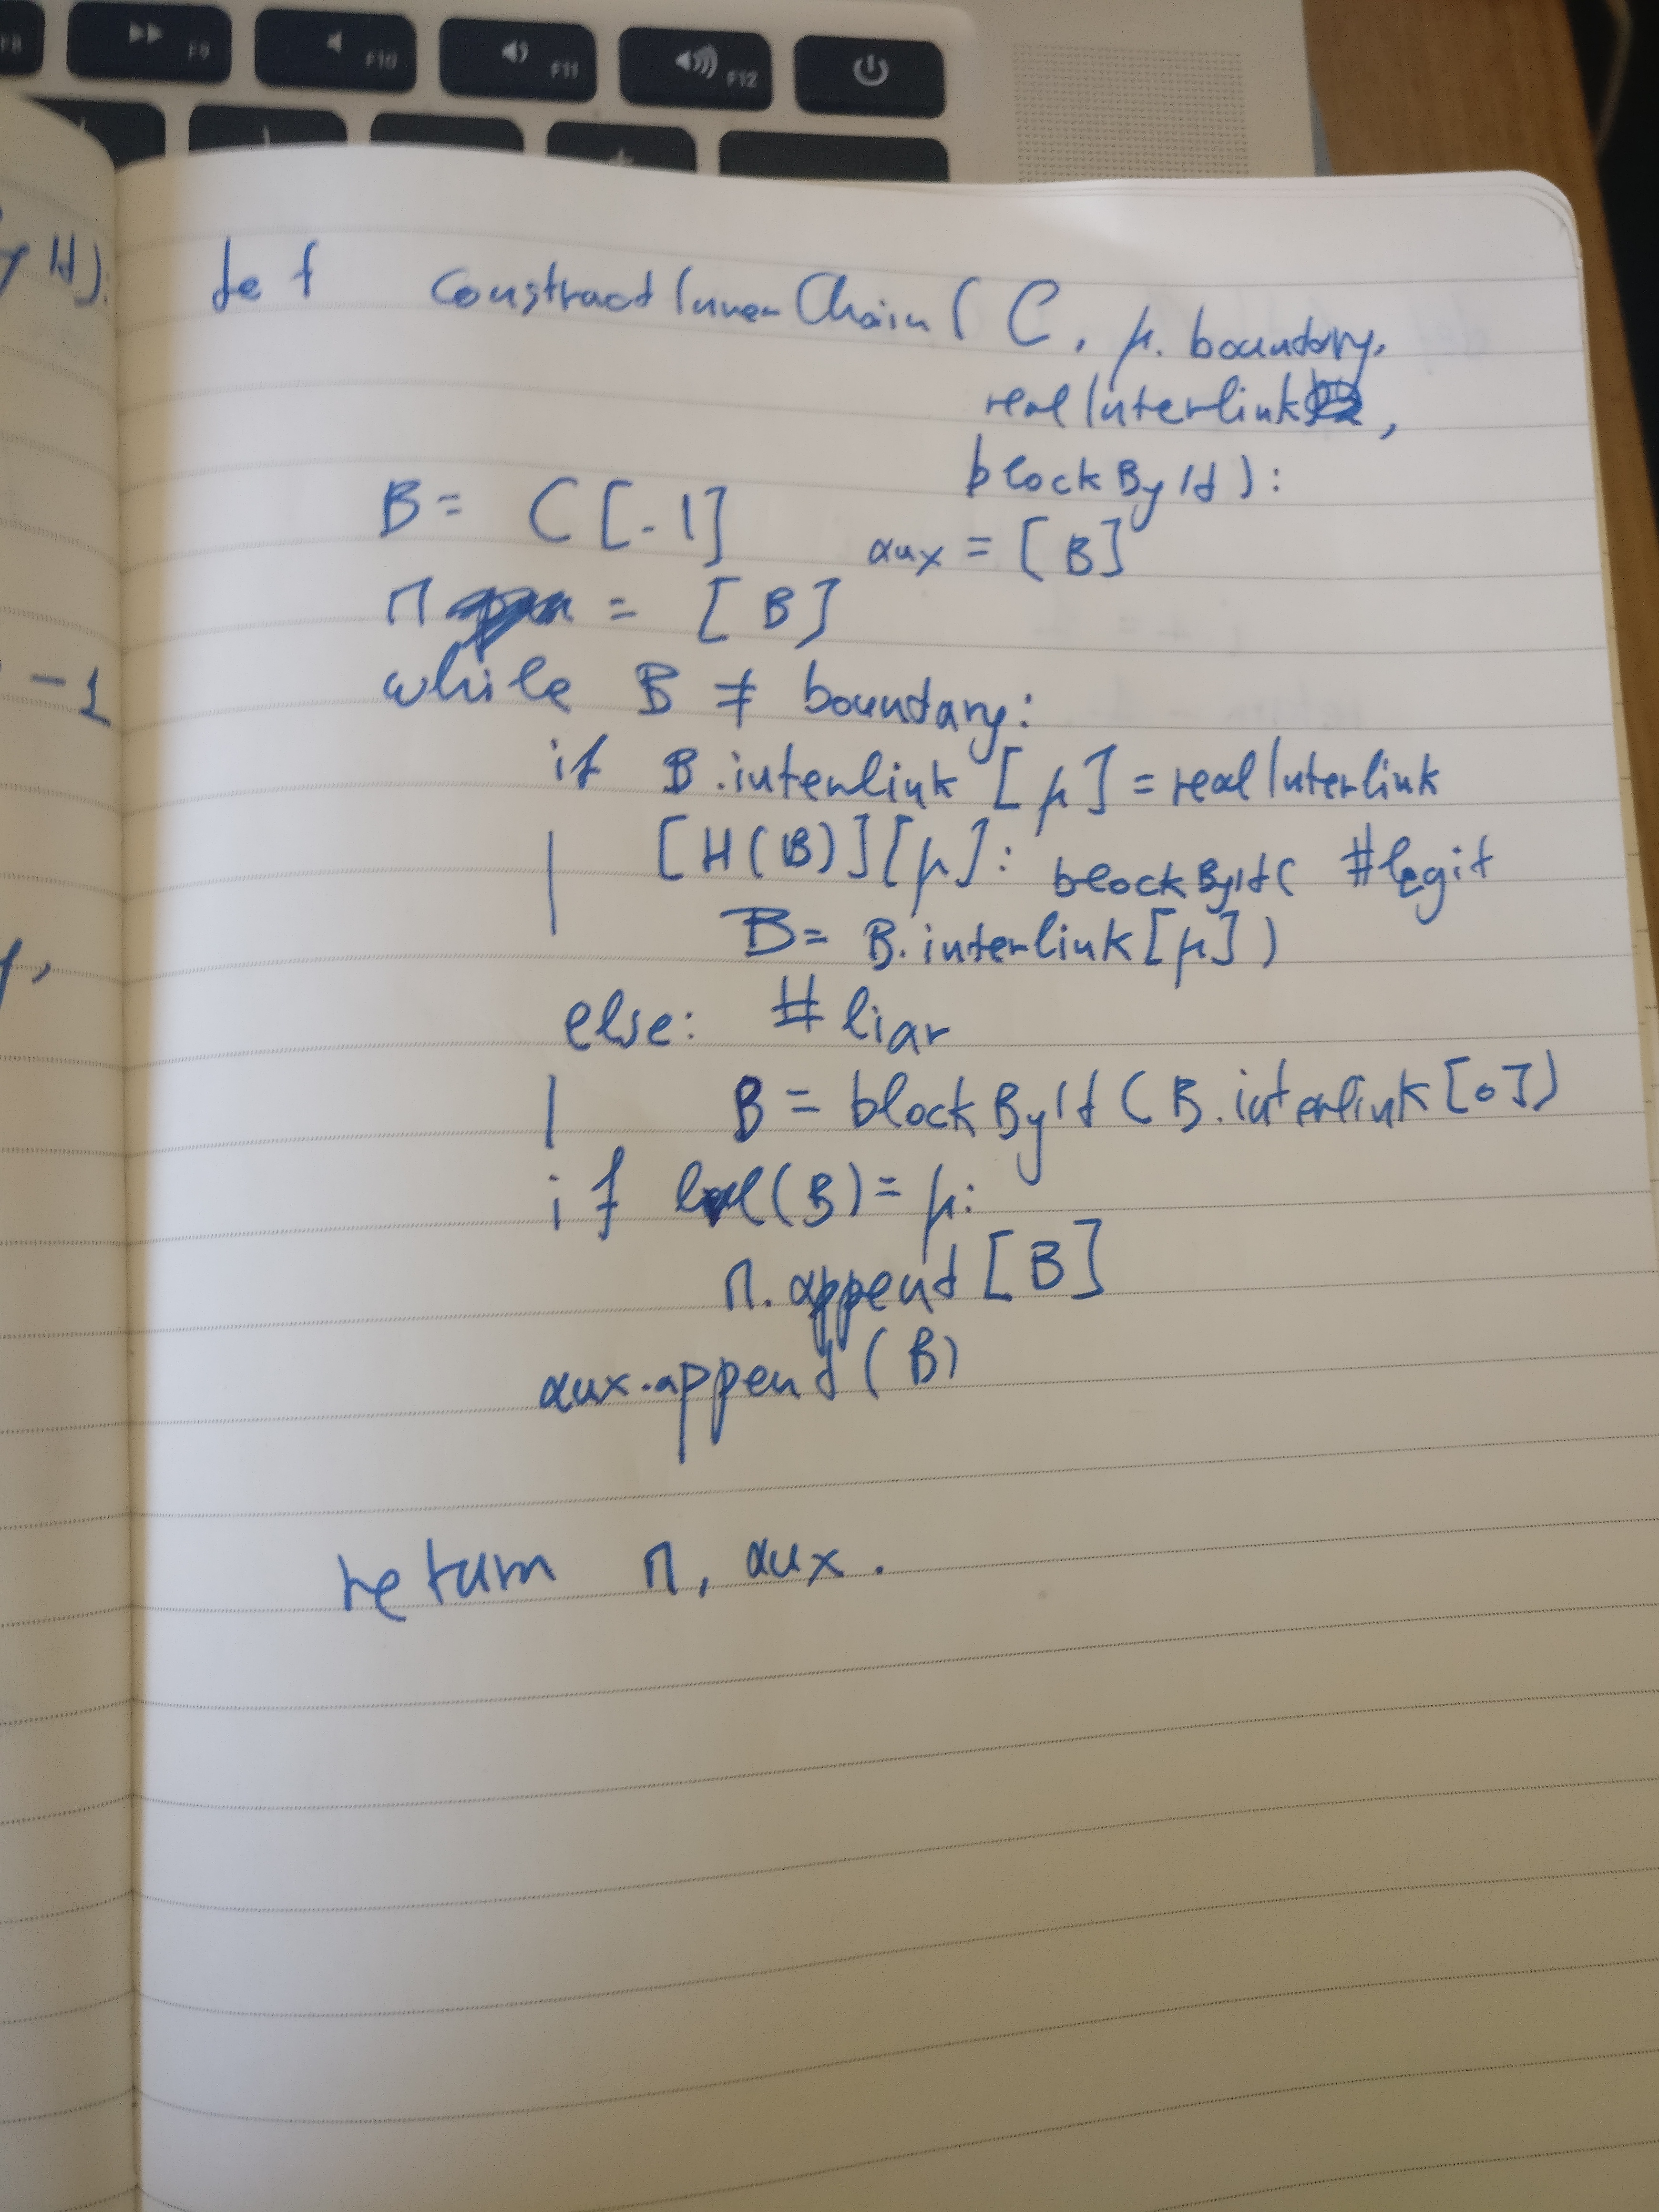 F8 F9 F10 F11 F12
y Id):
-1
def constractInnerChain(C, μ, boundary,
realInterlink,
blockById):
B = C[-1] aux = [B]
π = [B]
while B ≠ boundary:
if B.interlink[μ] = realInterlink
[H(B)][μ]: #legit
blockById(
B = B.interlink[μ])
else: #liar
B = blockById(B.interlink[0])
if level(B) = μ:
π.append[B]
aux.append(B)
return π, aux.